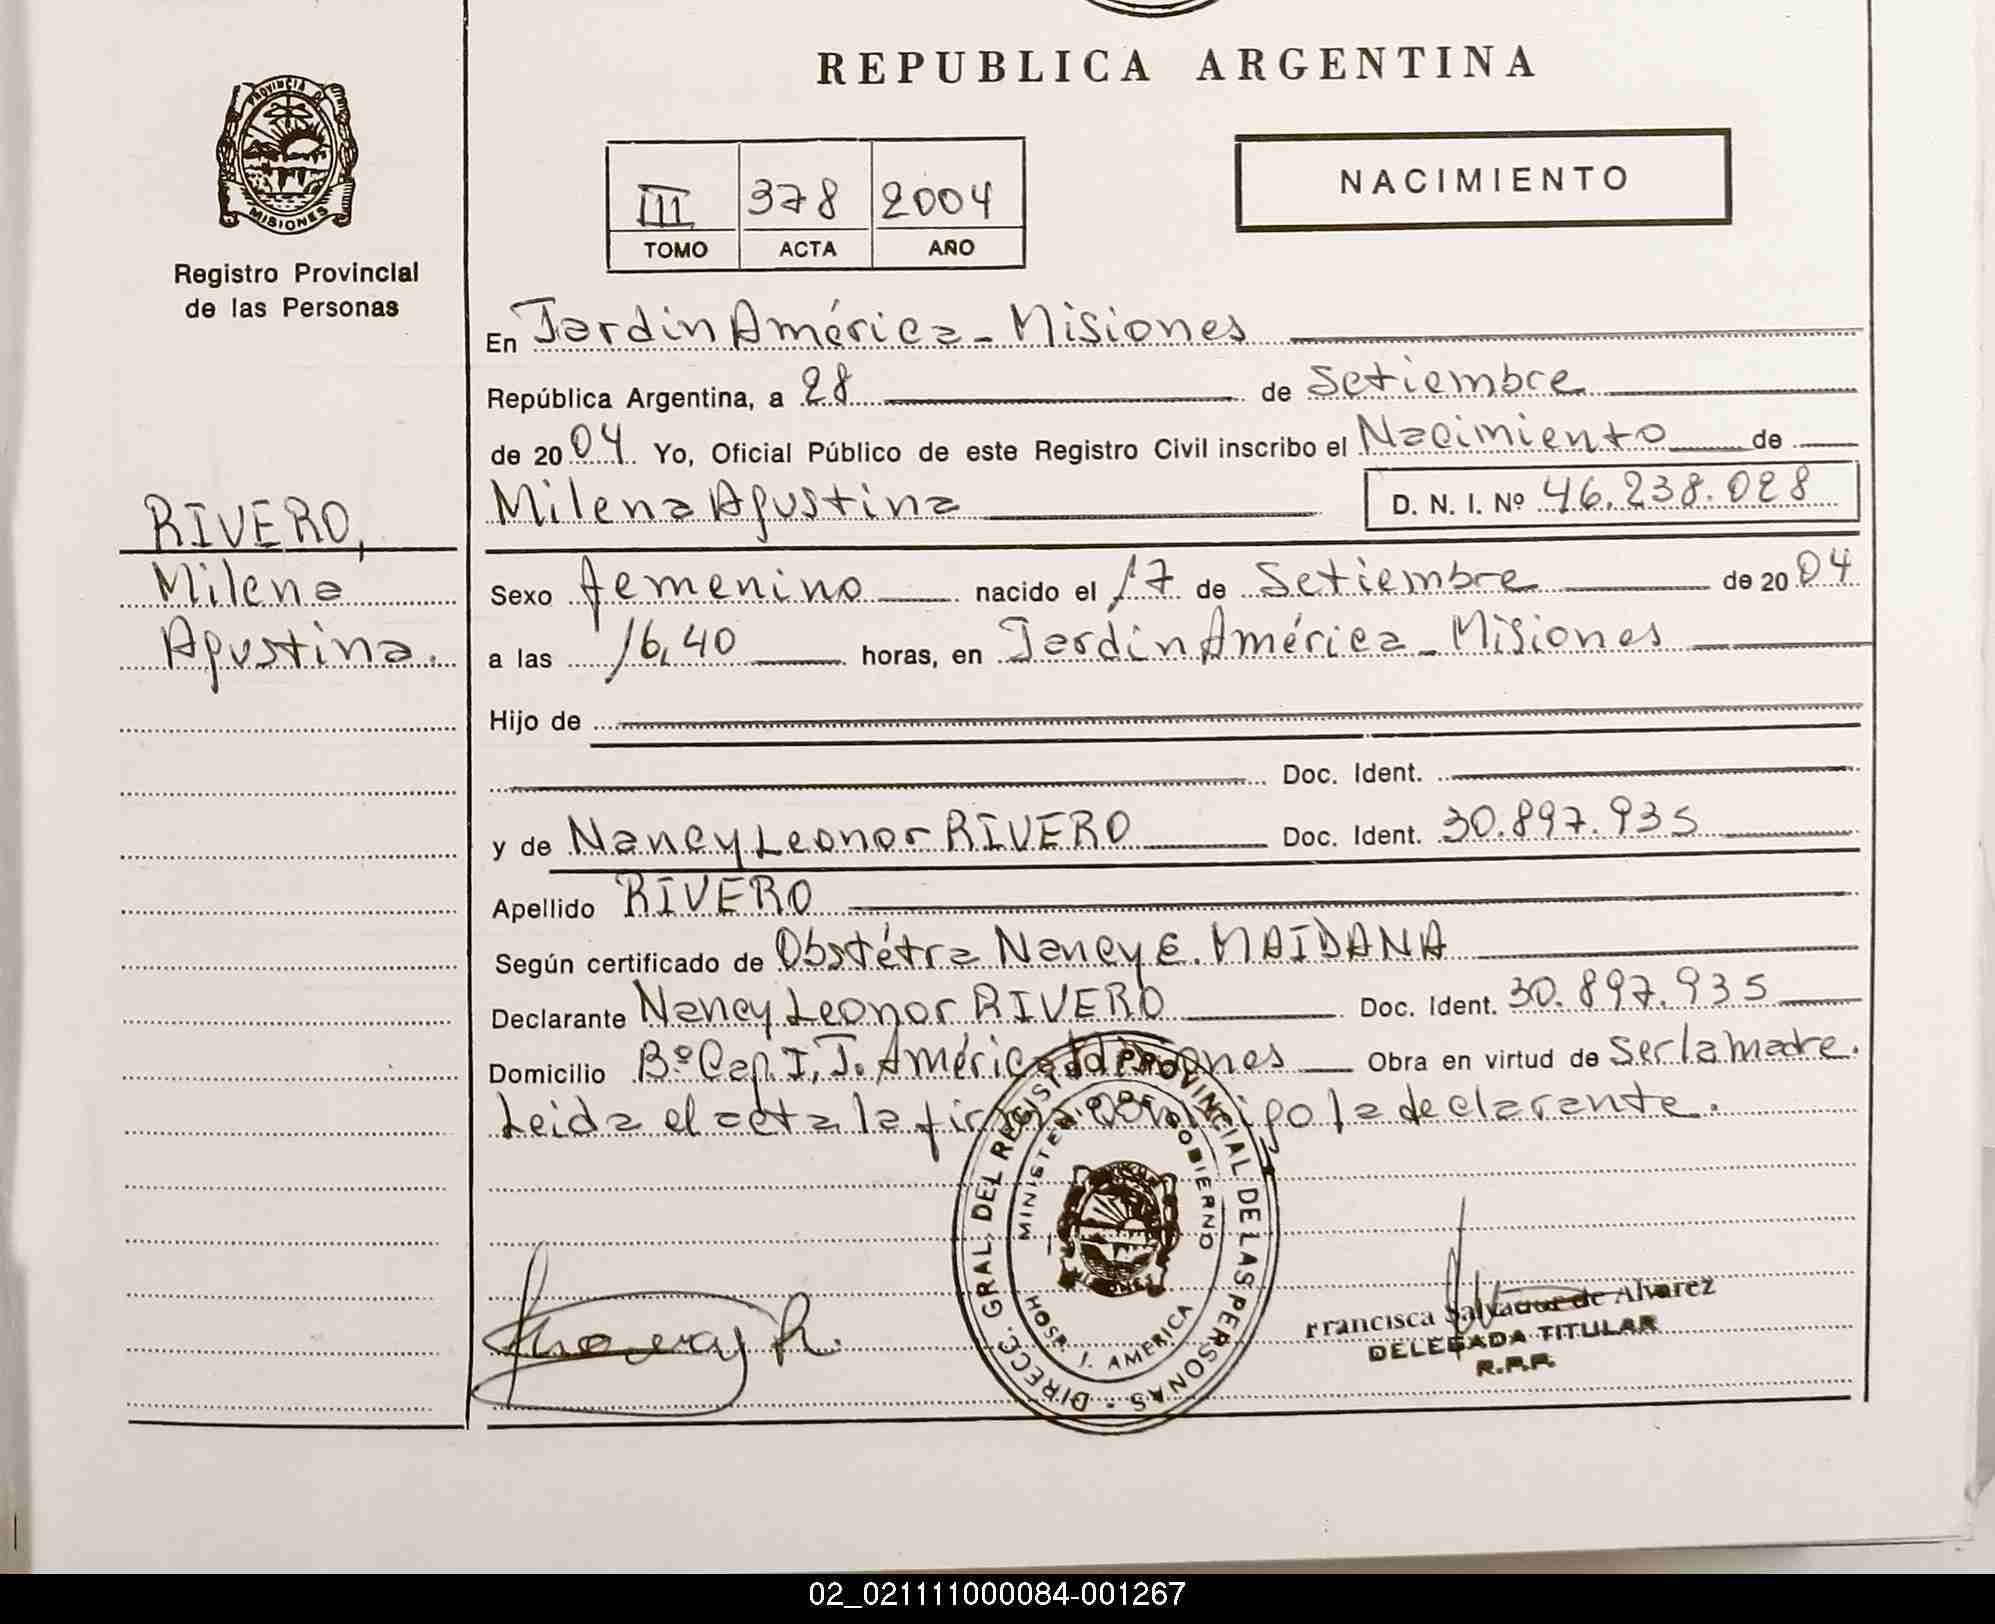 REPUBLICA ARGENTINA
PROVINCIA DE
MISIONES
Registro Provincial
de las Personas
III 378 2004
TOMO ACTA AÑO
NACIMIENTO
En Jardín América - Misiones
República Argentina, a 28 de Setiembre
de 2004 Yo, Oficial Público de este Registro Civil inscribo el Nacimiento de
Milena Agustina D. N. I. Nº 46.238.028
RIVERO,
Milena
Agustina.
Sexo femenino nacido el 17 de Setiembre de 2004
a las 16,40 horas, en Jardín América - Misiones
Hijo de
Doc. Ident.
y de Nancy Leonor RIVERO Doc. Ident. 30.897.935
Apellido RIVERO
Según certificado de Obstétra Nancy E. MAIDANA
Declarante Nancy Leonor RIVERO Doc. Ident. 30.897.935
Domicilio Bº Cep. I, J. América Misiones Obra en virtud de Ser la madre.
Leida el acta la firma conmigo la declarante.
DIRECC. GRAL. DEL REGISTRO PROVINCIAL DE LAS PERSONAS
MINISTERIO DE GOBIERNO
HOSP. J. AMERICA
R.
Francisca Salvador de Alvarez
DELEGADA TITULAR
R.P.P.
02_021111000084-001267